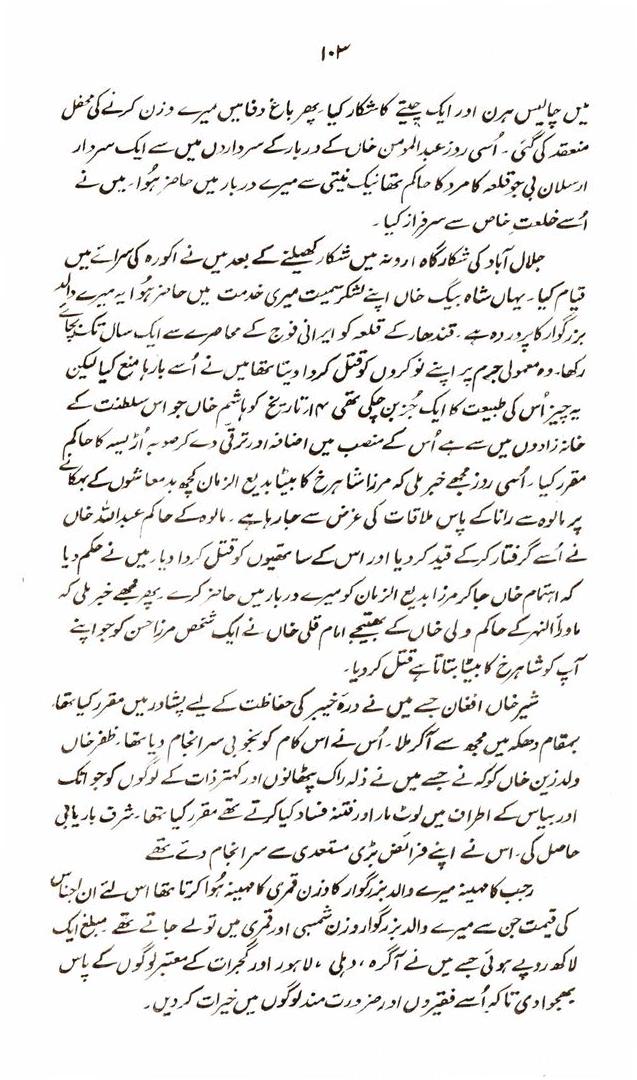 ۱۰۳
میں چالیس ہرن اور ایک چیتے کا شکار کیا پھر باغ وفا میں میرے وزن کرنے کی محفل
منعقد کی گئی۔ اُسی روز عبدالمومن خاں کے دربار کے سرداروں میں سے ایک سردار
ارسلان بی جو قلعہ کا مرد کا حاکم تھا نیک نیتی سے میرے دربار میں حاضر ہُوا۔ میں نے
اُسے خلعت خاص سے سرفراز کیا۔
جلال آباد کی شکار گاہ ارونہ میں شکار کھیلنے کے بعد میں نے اکورہ کی سرائے میں
قیام کیا۔ یہاں شاہ بیگ خاں اپنے لشکر سمیت میری خدمت میں حاضر ہُوا یہ میرے والد
بزرگوار کا پروردہ ہے۔ قندھار کے قلعہ کو ایرانی فوج کے محاصرے سے ایک سال تک بچائے
رکھا۔ وہ معمولی جرم پر اپنے نوکروں کو قتل کروا دیتا تھا میں نے اُسے بارہا منع کیا لیکن
یہ چیز اُس کی طبیعت کا ایک جُز بن چکی تھی ۱۴ تاریخ کو ہاشم خاں جو اس سلطنت کے
خانہ زادوں میں سے ہے اُس کے منصب میں اضافہ اور ترقی دے کر صوبہ اُڑیسہ کا حاکم
مقرر کیا۔ اُسی روز مجھے خبر ملی کہ مرزا شاہرخ کا بیٹا بدیع الزمان کچھ بدمعاشوں کے بہکانے
پر مالوہ سے رانا کے پاس ملاقات کی غرض سے جا رہا ہے۔ مالوہ کے حاکم عبداللہ خاں
نے اُسے گرفتار کرکے قید کر دیا اور اس کے ساتھیوں کو قتل کروا دیا۔ میں نے حکم دیا
کہ اہتمام خاں جا کر مرزا بدیع الزمان کو میرے دربار میں حاضر کرے۔ پھر مجھے خبر ملی کہ
ماورأ النہر کے حاکم ولی خاں کے بھتیجے امام قلی خاں نے ایک شخص مرزا حسن کو جو اپنے
آپ کو شاہرخ کا بیٹا بتاتا ہے قتل کر دیا۔
شیر خاں افغان جسے میں نے درہ خیبر کی حفاظت کے لیے پشاور میں مقرر کیا تھا،
بمقام دھکہ میں مجھ سے آکر ملا۔ اُس نے اس کام کو بخوبی سر انجام دیا تھا۔ ظفر خاں
ولد زین خاں کوکہ نے جسے میں نے ذلہ زاک پٹھانوں اور کہتر ذات کے لوگوں کو جو اٹک
اور بیاس کے اطراف میں لوٹ مار اور فتنہ فساد کیا کرتے تھے مقرر کیا تھا۔ شرف باریابی
حاصل کی۔ اس نے اپنے فرائض بڑی مستعدی سے سر انجام دئے تھے
رجب کا مہینہ میرے والد بزرگوار کا وزن قمری کا مہینہ ہُوا کرتا تھا اس لئے ان اجناس
کی قیمت جن سے میرے والد بزرگوار وزن شمسی اور قمری میں تولے جاتے تھے مبلغ ایک
لاکھ روپے ہوئی جسے میں نے آگرہ، دہلی، لاہور اور گجرات کے معتبر لوگوں کے پاس
بھجوا دی تاکہ اُسے فقیروں اور ضرورت مند لوگوں میں خیرات کر دیں۔